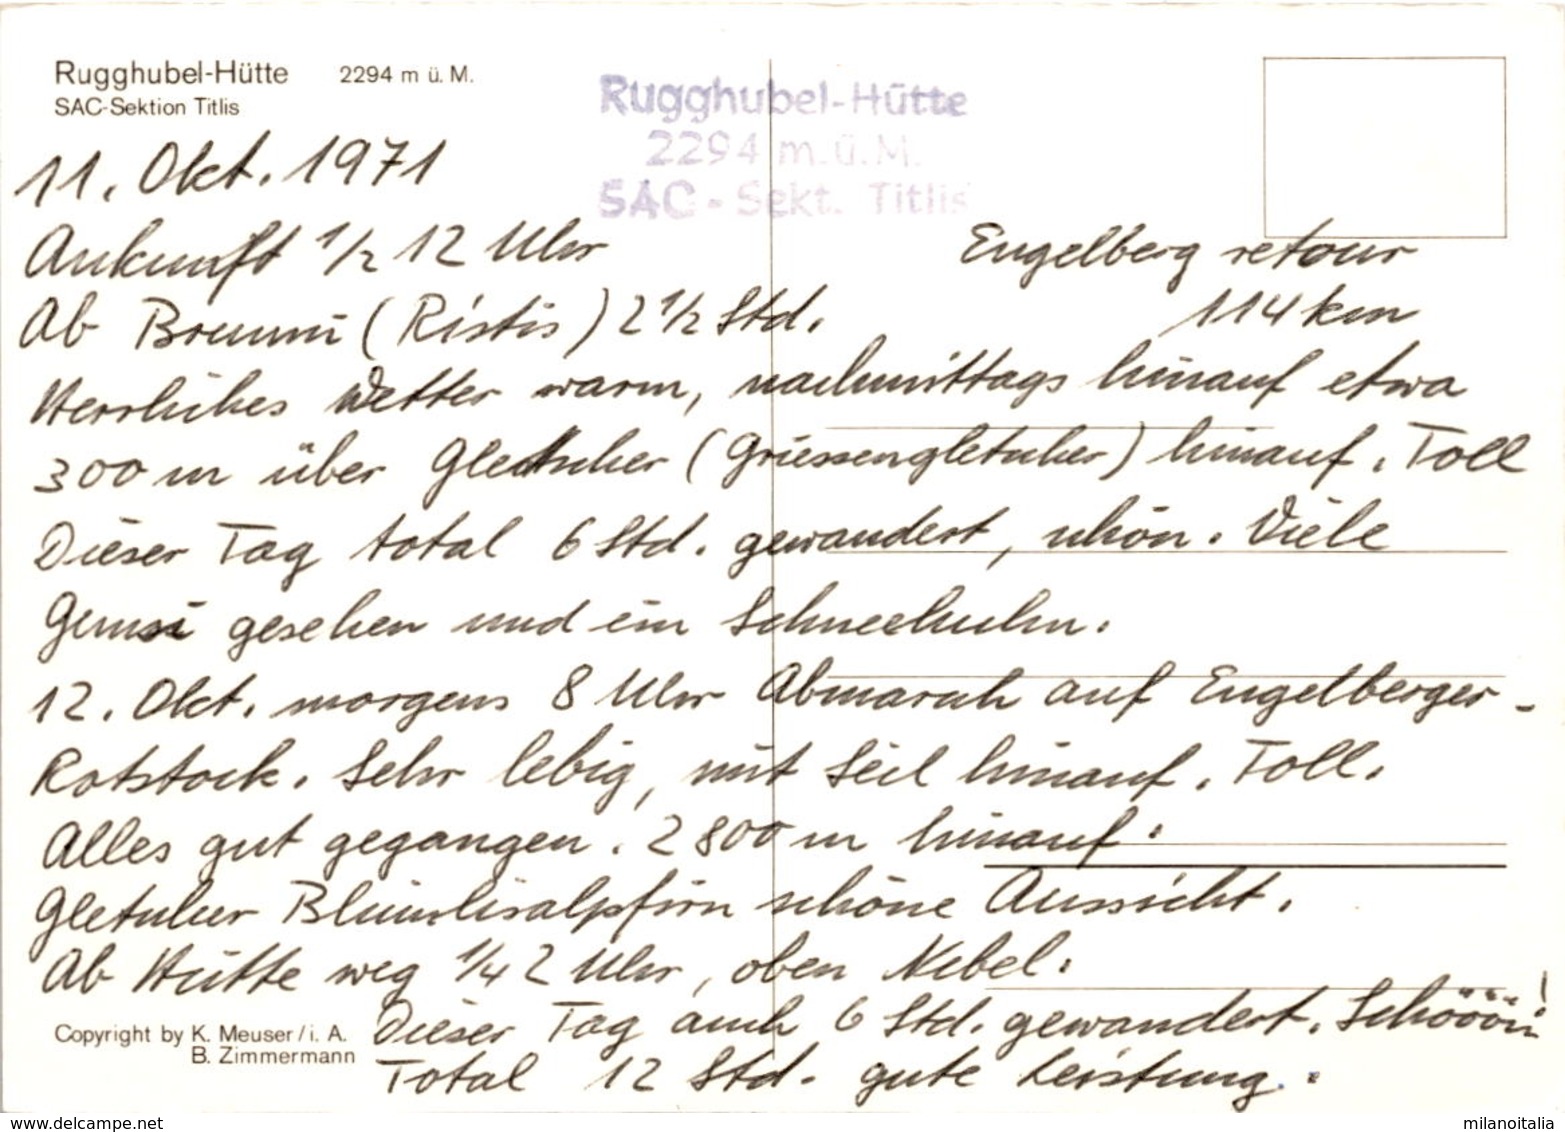 Rugghubel-Hütte 2294 m ü. M.
SAC-Sektion Titlis
Rugghubel-Hütte
2294 m.ü.M.
SAC - Sekt. Titlis
11. Okt. 1971
Ankunft 1/2 12 Uhr
Engelberg retour
Ab Brunni (Ristis) 2 1/2 Std.
114 km
Herrliches Wetter warm, nachmittags hinauf etwa
300 m über Gletscher (Griessengletscher) hinauf. Toll
Dieser Tag total 6 Std. gewandert, schön. Viele
Gemsi gesehen und ein Schneehuhn.
12. Okt. morgens 8 Uhr Abmarsch auf Engelberger-
Rotstock. Sehr lebig, mit Seil hinauf. Toll.
Alles gut gegangen. 2800 m hinauf.
Gletscher Blümlisalpfirn schöne Aussicht.
Ab Hütte weg 1/4 2 Uhr, oben Nebel.
Dieser Tag auch 6 Std. gewandert. Schööön!
Total 12 Std. gute Leistung.
Copyright by K. Meuser/i. A.
B. Zimmermann
www.delcampe.net
milanoitalia